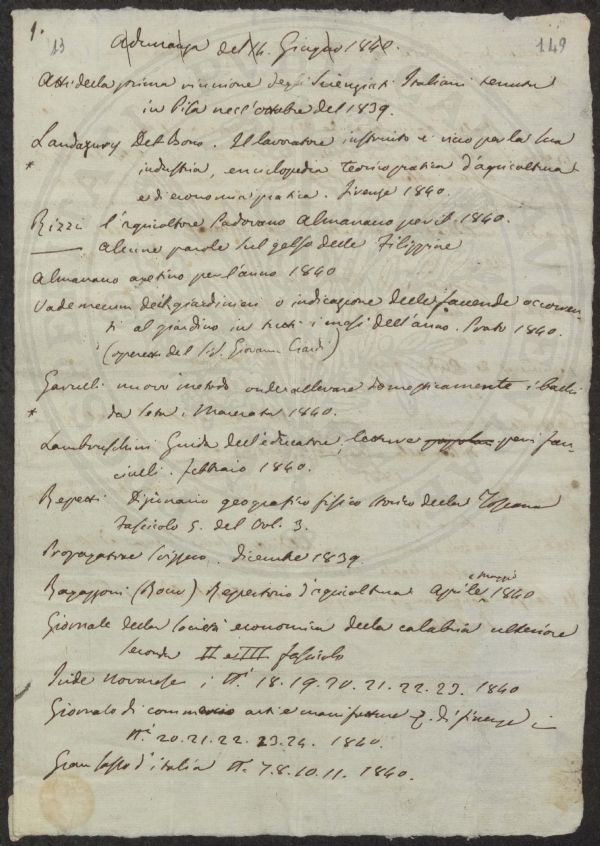 1.
13 149
Adunanza del 14. Giugno 1840.
Atti della prima riunione degli Scienziati Italiani tenuta
in Pisa nell'ottobre del 1839.
Landazury Del Bono. Il lavoratore instruito e ricco per la sua
* industria, enciclopedia teorico pratica d'agricoltura
e di economia pratica. Firenze 1840.
Rizzi L'agricoltore Padovano Almanacco per il 1840.
— Alcune parole sul gelso delle Filippine
Almanacco aretino per l'anno 1840
Vade mecum dei giardinieri o indicazione delle faccende occorren-
ti al giardino in tutti i mesi dell'anno. Prato 1840.
(operetta del Sig. Giovanni Ciardi)
nuovo metodo onde allevare domesticamente i bachi
* da seta. Macerata 1840.
Lambruschini Guida dell'educatore, letture popolari pei fan-
ciulli. Febbraio 1840.
Repetti Dizionario geografico fisico storico della Toscana
Fascicolo 5. del Vol. 3.
Propagatore Svizzero. Dicembre 1839.
Ragazzoni (Rocco) Repertorio d'agricoltura Aprile e Maggio 1840
Giornale della Società economica della Calabria ulteriore
Seconda II e III fascicolo
Iride Novarese i Ni 18.19.20.21.22.23. 1840
Giornale di commercio arti e manifatture &. di Firenze i
Ni 20.21.22.23.24. 1840.
Gran Sasso d'Italia Ni 7.8.10.11. 1840.